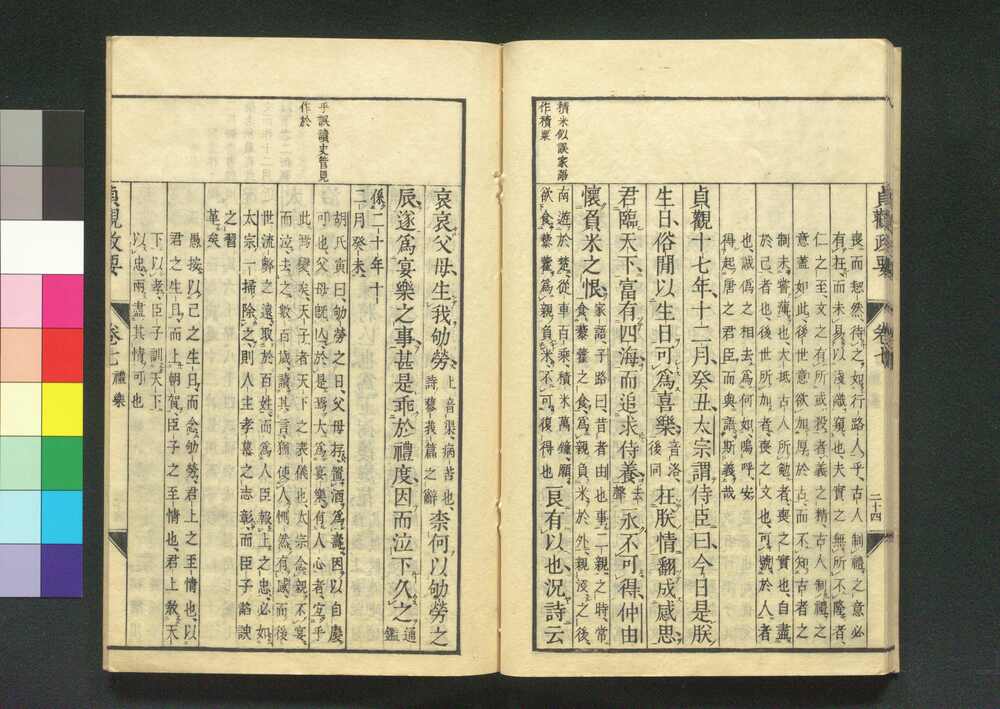 貞觀政要 卷七 二十四
喪而恝然待之如行路人乎古人制禮之意必
有在而未易以淺識窺也夫實之無所不隆者
仁之至文之有所或殺者義之精古人制禮之
意蓋如此後世意欲加厚於古而不知古者之
制未嘗薄也大抵古人所勉者喪之實也自盡
於己者也後世所加者喪之文也可號於人者
也誠僞之相去爲何如嗚呼安
得起居之君臣而與語斯義哉
貞觀十七年十二月癸丑太宗謂侍臣曰今日是朕
生日俗間以生日可爲喜樂音洛後同在朕情翻成感思
君臨天下富有四海而追求侍養去聲永不可得仲由
懷負米之恨家語子路曰昔者由也事二親之時常
食藜藿之食爲親負米於外親沒之後
南遊於楚從車百乘積米萬鍾願
欲食藜藿爲親負米不可復得也良有以也況詩云
積米似誤家語
作積粟
哀哀父母生我劬勞上音渠病苦也
詩蓼莪篇之辭柰何以劬勞之
辰遂爲宴樂之事甚是乖於禮度因而泣下久之通鑑
係二十年十
二月癸未
胡氏寅曰劬勞之日父母存置酒爲壽因以自慶
可也父母既亡於是焉大爲宴樂有人心者宜乎
此時變矣天子者天下之表儀也太宗念親不宴
而泣去之數百歲讀其言猶使人惻然有感而後
世流弊之遠取於百姓而爲人臣報上之忠必如
太宗一掃除之則人主孝慕之志彰而臣子諂諛
之習
革矣
愚按以己之生日而念劬勞君上之至情也以
君之生旦而上朝賀臣子之至情也君上教天
下以孝臣子訓天下
以忠兩盡其情可也
乎誤讀史管見
作於
貞觀政要 卷七 禮樂